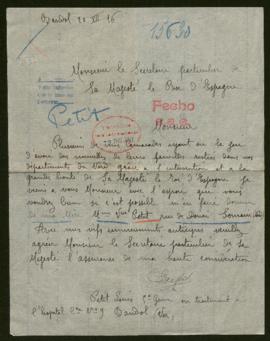 Bandol 20 XII 16
15630
Monsieur le Secrétaire particulier de
Sa Majesté le Roi d'Espagne
Petit
Fecho
Monsieur
Plusieurs de mes Camarades ayant eu la joie
d'avoir des nouvelles de leurs familles restées dans nos
départements du Nord grâce à l'intervention et à la
grande bonté de Sa Majesté le Roi d'Espagne je
viens à vous Monsieur avec l'espoir que vous
voudrez bien si c'est possible m'en faire donner
de ma mère Mme Vve Petit rue de Douai
Avec mes vifs remerciements anticipés veuillez
agréer Monsieur le Secrétaire particulier de Sa
Majesté l'assurance de ma haute considération
Petit
Petit Louis en traitement à
l'hôpital Bandol Var